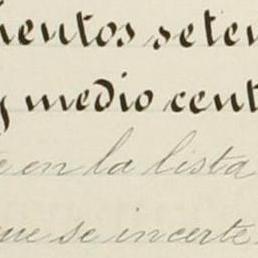 ientos seten
y medio cent
e en la lista
que se incerte